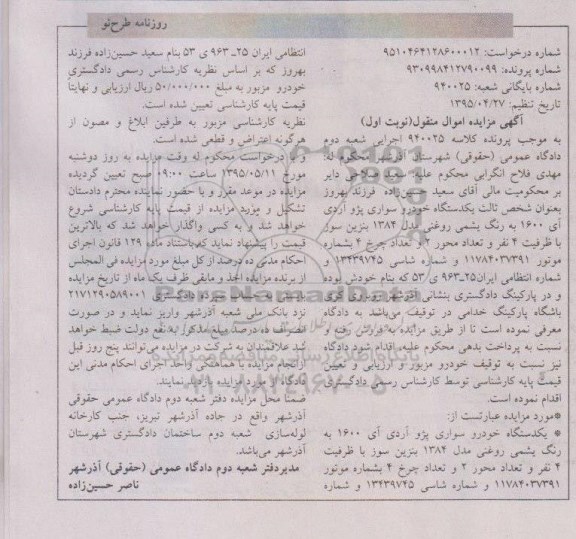 روزنامه طرح‌نو
شماره درخواست: ۹۵۱۰۴۶۴۱۲۸۶۰۰۰۱۲
شماره پرونده: ۹۳۰۹۹۸۴۱۲۷۹۰۰۹۹
شماره بایگانی شعبه: ۹۴۰۰۲۵
تاریخ تنظیم: ۱۳۹۵/۰۴/۲۷
آگهی مزایده اموال منقول(نوبت اول)
به موجب پرونده کلاسه ۹۴۰۰۲۵ اجرایی شعبه دوم
دادگاه عمومی (حقوقی) شهرستان آذرشهر محکوم له:
مهدی فلاح انگرابی محکوم علیه: سعید فلاحی دایر
بر محکومیت مالی آقای سعید حسین‌زاده فرزند بهروز
بعنوان شخص ثالث یکدستگاه خودرو سواری پژو آردی
آی ۱۶۰۰ به رنگ یشمی روغنی مدل ۱۳۸۴ بنزین سوز
با ظرفیت ۴ نفر و تعداد محور ۲ و تعداد چرخ ۴ بشماره
موتور ۱۱۷۸۴۰۳۷۳۹۱ و شماره شاسی ۱۳۴۳۹۷۴۵ و
شماره انتظامی ایران۲۵ـ۹۶۳ ی ۵۳ که بنام خودش بوده
و در پارکینگ دادگستری بنشانی آذرشهر روبروی
باشگاه پارکینگ خدامی در توقیف می‌باشد به دادگاه
معرفی نموده است تا از طریق مزایده به فروش رفته و
نسبت به پرداخت بدهی محکوم علیه، اقدام شود دادگاه
نیز نسبت به توقیف خودرو مزبور و ارزیابی و تعیین
قیمت پایه کارشناسی توسط کارشناس رسمی دادگستری
اقدام نموده است.
*مورد مزایده عبارتست از:
* یکدستگاه خودرو سواری پژو آردی آی ۱۶۰۰ به
رنگ یشمی روغنی مدل ۱۳۸۴ بنزین سوز با ظرفیت
۴ نفر و تعداد محور ۲ و تعداد چرخ ۴ بشماره موتور
۱۱۷۸۴۰۳۷۳۹۱ و شماره شاسی ۱۳۴۳۹۷۴۵ و شماره
انتظامی ایران ۲۵ـ ۹۶۳ ی ۵۳ بنام سعید حسین‌زاده فرزند
بهروز که بر اساس نظریه کارشناس رسمی دادگستری
خودرو مزبور به مبلغ ۵۰/۰۰۰/۰۰۰ ریال ارزیابی و نهایتاً
قیمت پایه کارشناسی تعیین شده است.
نظریه کارشناسی مزبور به طرفین ابلاغ و مصون از
هرگونه اعتراض و قطعی شده است.
و بنا درخواست محکوم له وقت مزایده به روز دوشنبه
مورخ ۱۳۹۵/۰۵/۱۱ ساعت ۰۹:۰۰ صبح تعیین گردیده
مزایده در موعد مقرر و با حضور نماینده محترم دادستان
تشکیل و مورد مزایده از قیمت پایه کارشناسی شروع
خواهد شد و به کسی واگذار خواهد شد که بالاترین
قیمت را پیشنهاد نماید که باستناد ماده ۱۲۹ قانون اجرای
احکام مدنی ده درصد از کل مبلغ مورد مزایده فی المجلس
از برنده مزایده اخذ و مابقی ظرف یک ماه از تاریخ مزایده
بایستی به حساب سپرده دادگستری ۲۱۷۱۲۹۰۵۸۹۰۰۱
نزد بانک ملی شعبه آذرشهر واریز نماید و در صورت
انصراف ده درصد مبلغ مذکور به نفع دولت ضبط خواهد
شد علاقمندان به شرکت در مزایده می‌توانند پنج روز قبل
از انجام مزایده با هماهنگی واحد اجرای احکام مدنی این
دادگاه از مورد مزایده بازدید نمایند.
ضمناً محل مزایده دفتر شعبه دوم دادگاه عمومی حقوقی
آذرشهر واقع در جاده آذرشهر تبریز، جنب کارخانه
لوله‌سازی شعبه دوم ساختمان دادگستری شهرستان
آذرشهر می‌باشد.
مدیردفتر شعبه دوم دادگاه عمومی (حقوقی) آذرشهر
ناصر حسین‌زاده
ParsNamadData
پایگاه اطلاع رسانی مناقصه و مزایده